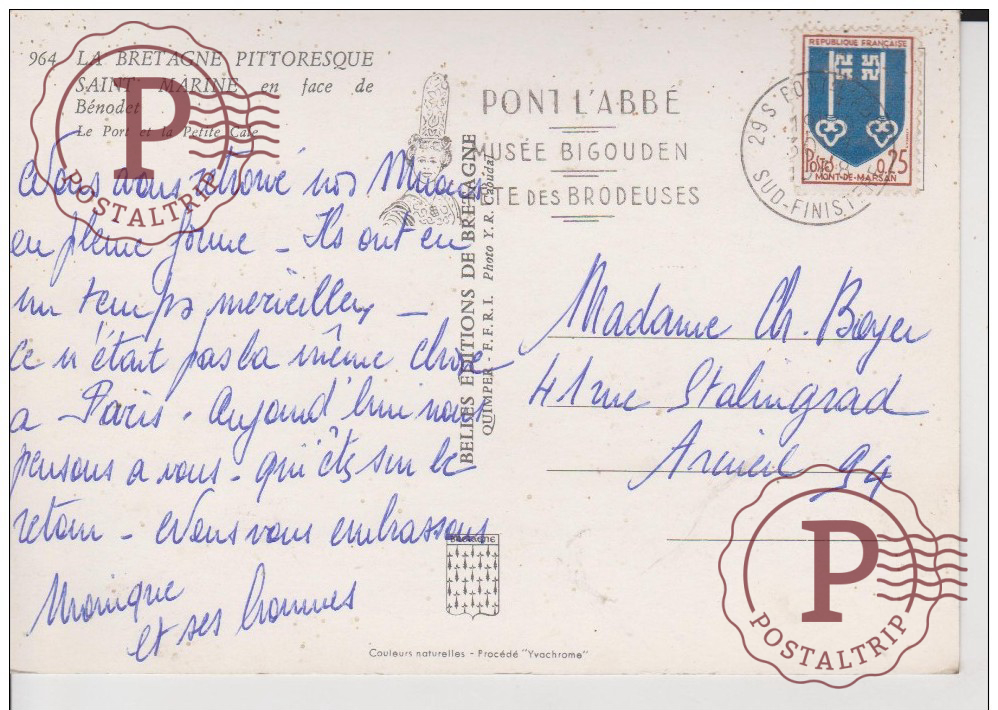 964 LA BRETAGNE PITTORESQUE
SAINT MARINE en face de
Bénodet
Le Port et la Petite Cale
PONT L'ABBÉ
MUSÉE BIGOUDEN
FÊTE DES BRODEUSES
29 S PONT
SUD-FINISTÈRE
REPUBLIQUE FRANÇAISE
POSTES 0,25
MONT-DE-MARSAN
Nous avons retrouvé nos
en pleine forme – Ils ont eu
un temps merveilleux –
ce n'était pas la même chose
a Paris. Aujourd'hui nous
pensons a vous. qui êtes sur le
retour – Nous vous embrassons
Monique
et ses hommes
BELLES ÉDITIONS DE BRETAGNE
QUIMPER - F.F.R.I. Photo Y. R. Caoudal
Madame Ch. Boyer
41 rue Stalingrad
Arcueil 94
BRETAGNE
Couleurs naturelles - Procédé "Yvachrome"
P
POSTALTRIP
P
POSTALTRIP